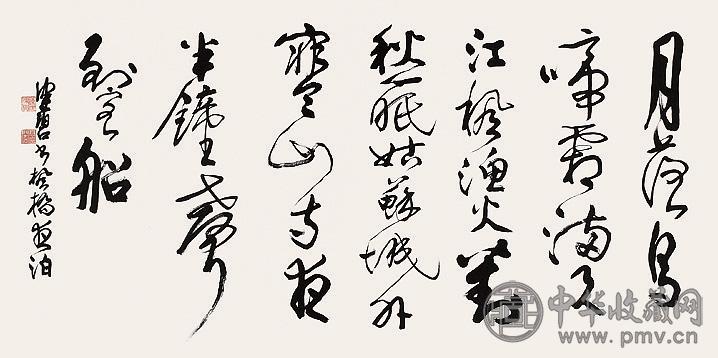 月落烏
啼霜滿天
江楓漁火對
愁眠姑蘇城外
寒山寺夜
半鐘聲
到客船
书楓橋夜泊
中华收藏网
www.pmv.cn